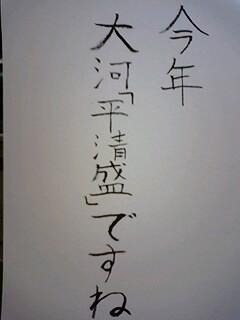 今年
大河「平清盛」ですね